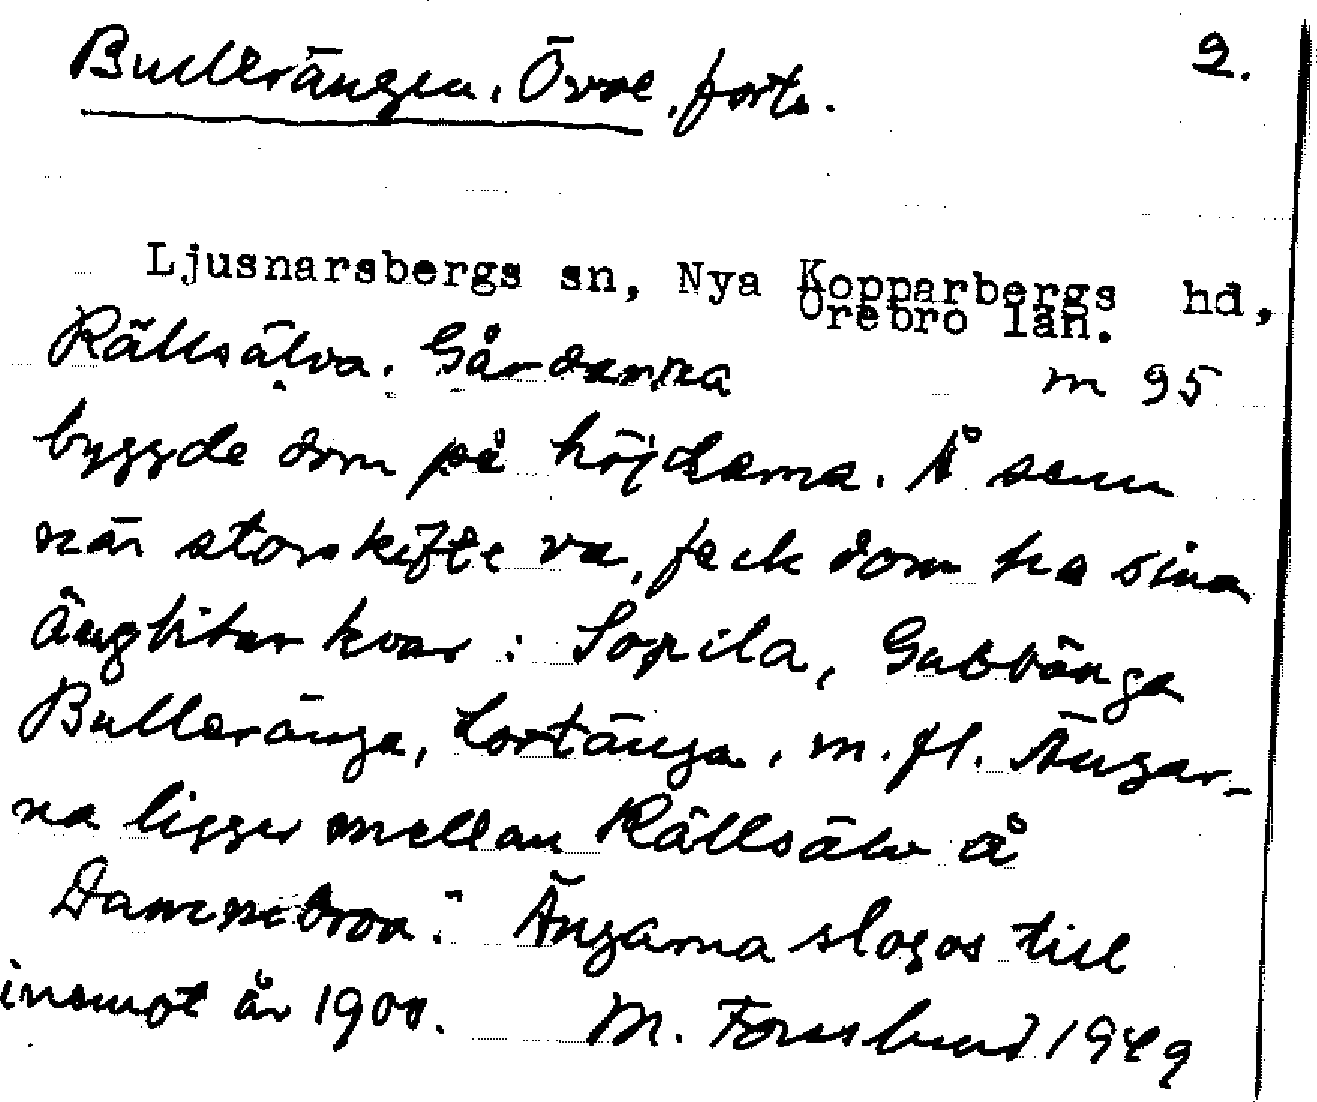 Bullerängen, Övre, forts. 2.
Ljusnarsbergs sn, Nya Kopparbergs hd,
Örebro län.
Rällsälva. Gårdarna m 95
byggde dom på höjderna. Å senn
när storskifte va, feck dom ha sina
ängbitar kvar: Sopila, Gubbänga
Bulleränga, Lortänga, m. fl. Ängar-
na ligger mellan Rällsälv å
Dammebron." Ängarna slogos till
inemot år 1900. M. Forsslund 1949